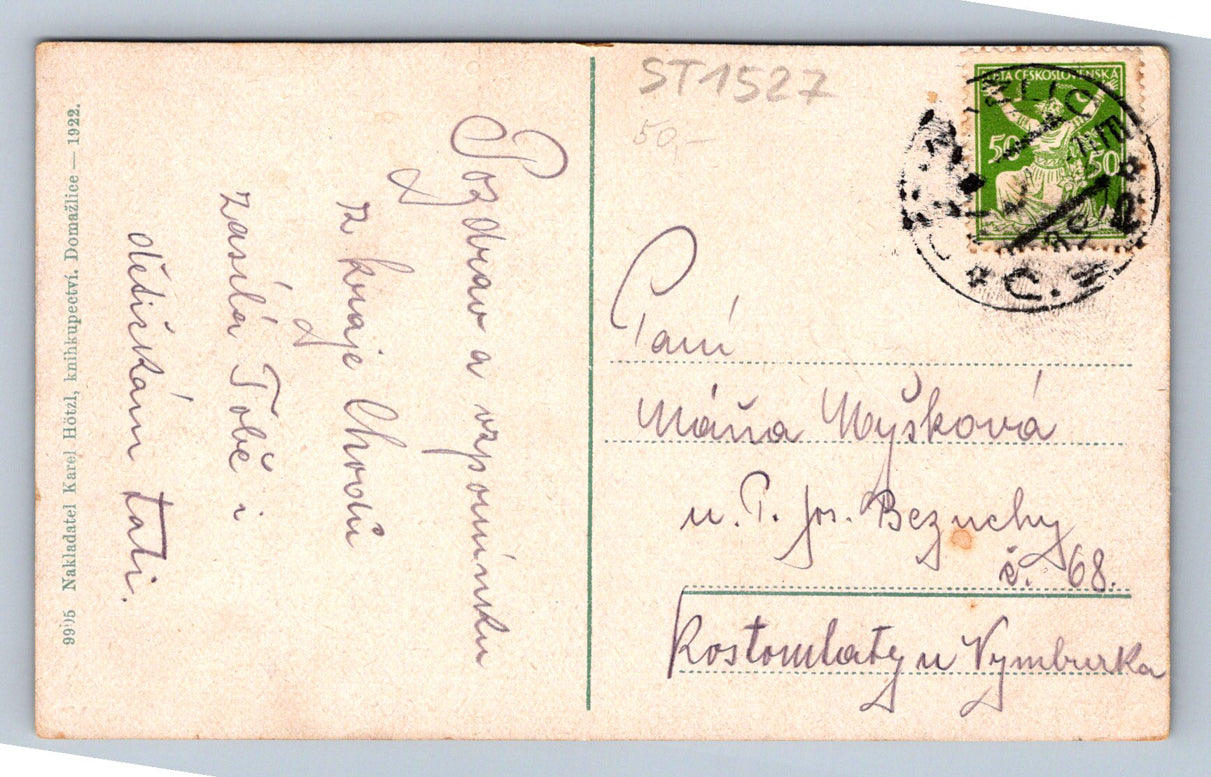 9905 Nakladatel Karel Hötzl, knihkupectví. Domažlice — 1922.
Pozdrav a vzpomínku
z kraje Chodů
zasílá Tobě i
dětičkám tati.
ST1527
50,-
ČESKOSLOVENSKÁ
50 50
Paní
Máňa Myšková
u. P. Jos. Bezuchy
č. 68.
Kostomlaty u Nymburka